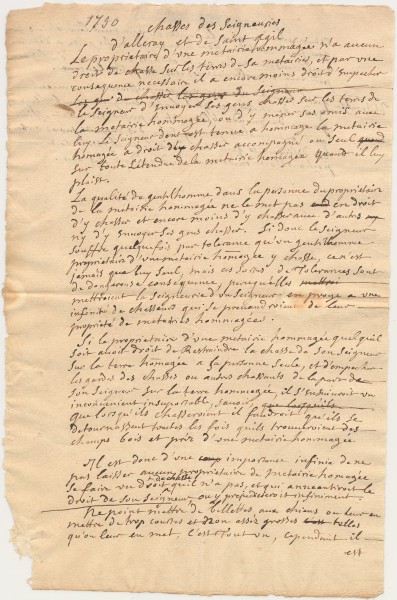 1750 chasses des Seigneuries
d'alleray et de Saint agil
Le propriétaire d'une metairie hommagée n'a aucun
droit de chasse sur les terres de sa metairie, et par une
consequence necessaire il a encore moins droit d'empecher
le Seigneur d'Envoyer ses gens chasser sur les terres de
la metairie hommagée, ou d'y mener ses amis avec
luy. Le Seigneur dont est tenue a hommage la metairie
homagée a droit d'y chasser accompagné ou seul quand
sur toute l'etendue de la metairie homagée quand il luy
plaist.
La qualité de gentilhomme dans la personne du propriétaire
de la metairie hommagée ne le met pas en droit
d'y chasser et encore moins d'y chasser avec d'autres
n'y d'y envoyer ses gens chasser. Si donc le Seigneur
souffre quelquefois par tolerance qu'un gentilhomme
propriétaire d'une metairie homagée y chasse, ce n'est
jamais que luy seul, mais ces sortes de Tolerances sont
de dangereuse consequence, parcequ'elles
mettroient la Seigneurie du Seigneur en proye a une
infinité de chasseurs qui se prevaudroient de leur
propriété de metairies hommagées.
Si le propriétaire d'une metairie hommagée quelqu'il
soit avoit droit de Restraindre la chasse de son Seigneur
sur la terre homagée a sa personne seule, et d'empecher
les gardes des chasses ou autres chassants de la part de
son Seigneur sur la terre hommagée, il s'ensuivroit un
inconvenient insuportable, savoir,
que lorsqu'ils chasseroient il faudroit qu'ils se
detournassent toutes les fois qu'ils trouveroient des
champs bois et prez d'une metairie hommagée
Il est donc d'une importance infinie de ne
pas laisser aucun propriétaire de metairie homagée
se faire un droit de chasse qu'il n'a pas, et qui aneantiroit le
droit de son Seigneur, ou y prejudicieroit infiniment.
Ne point mettre de billettes aux chiens ou leur en
mettre de trop courtes et non assés grosses telles
qu'on leur en met. c'est tout un, cependant il
est